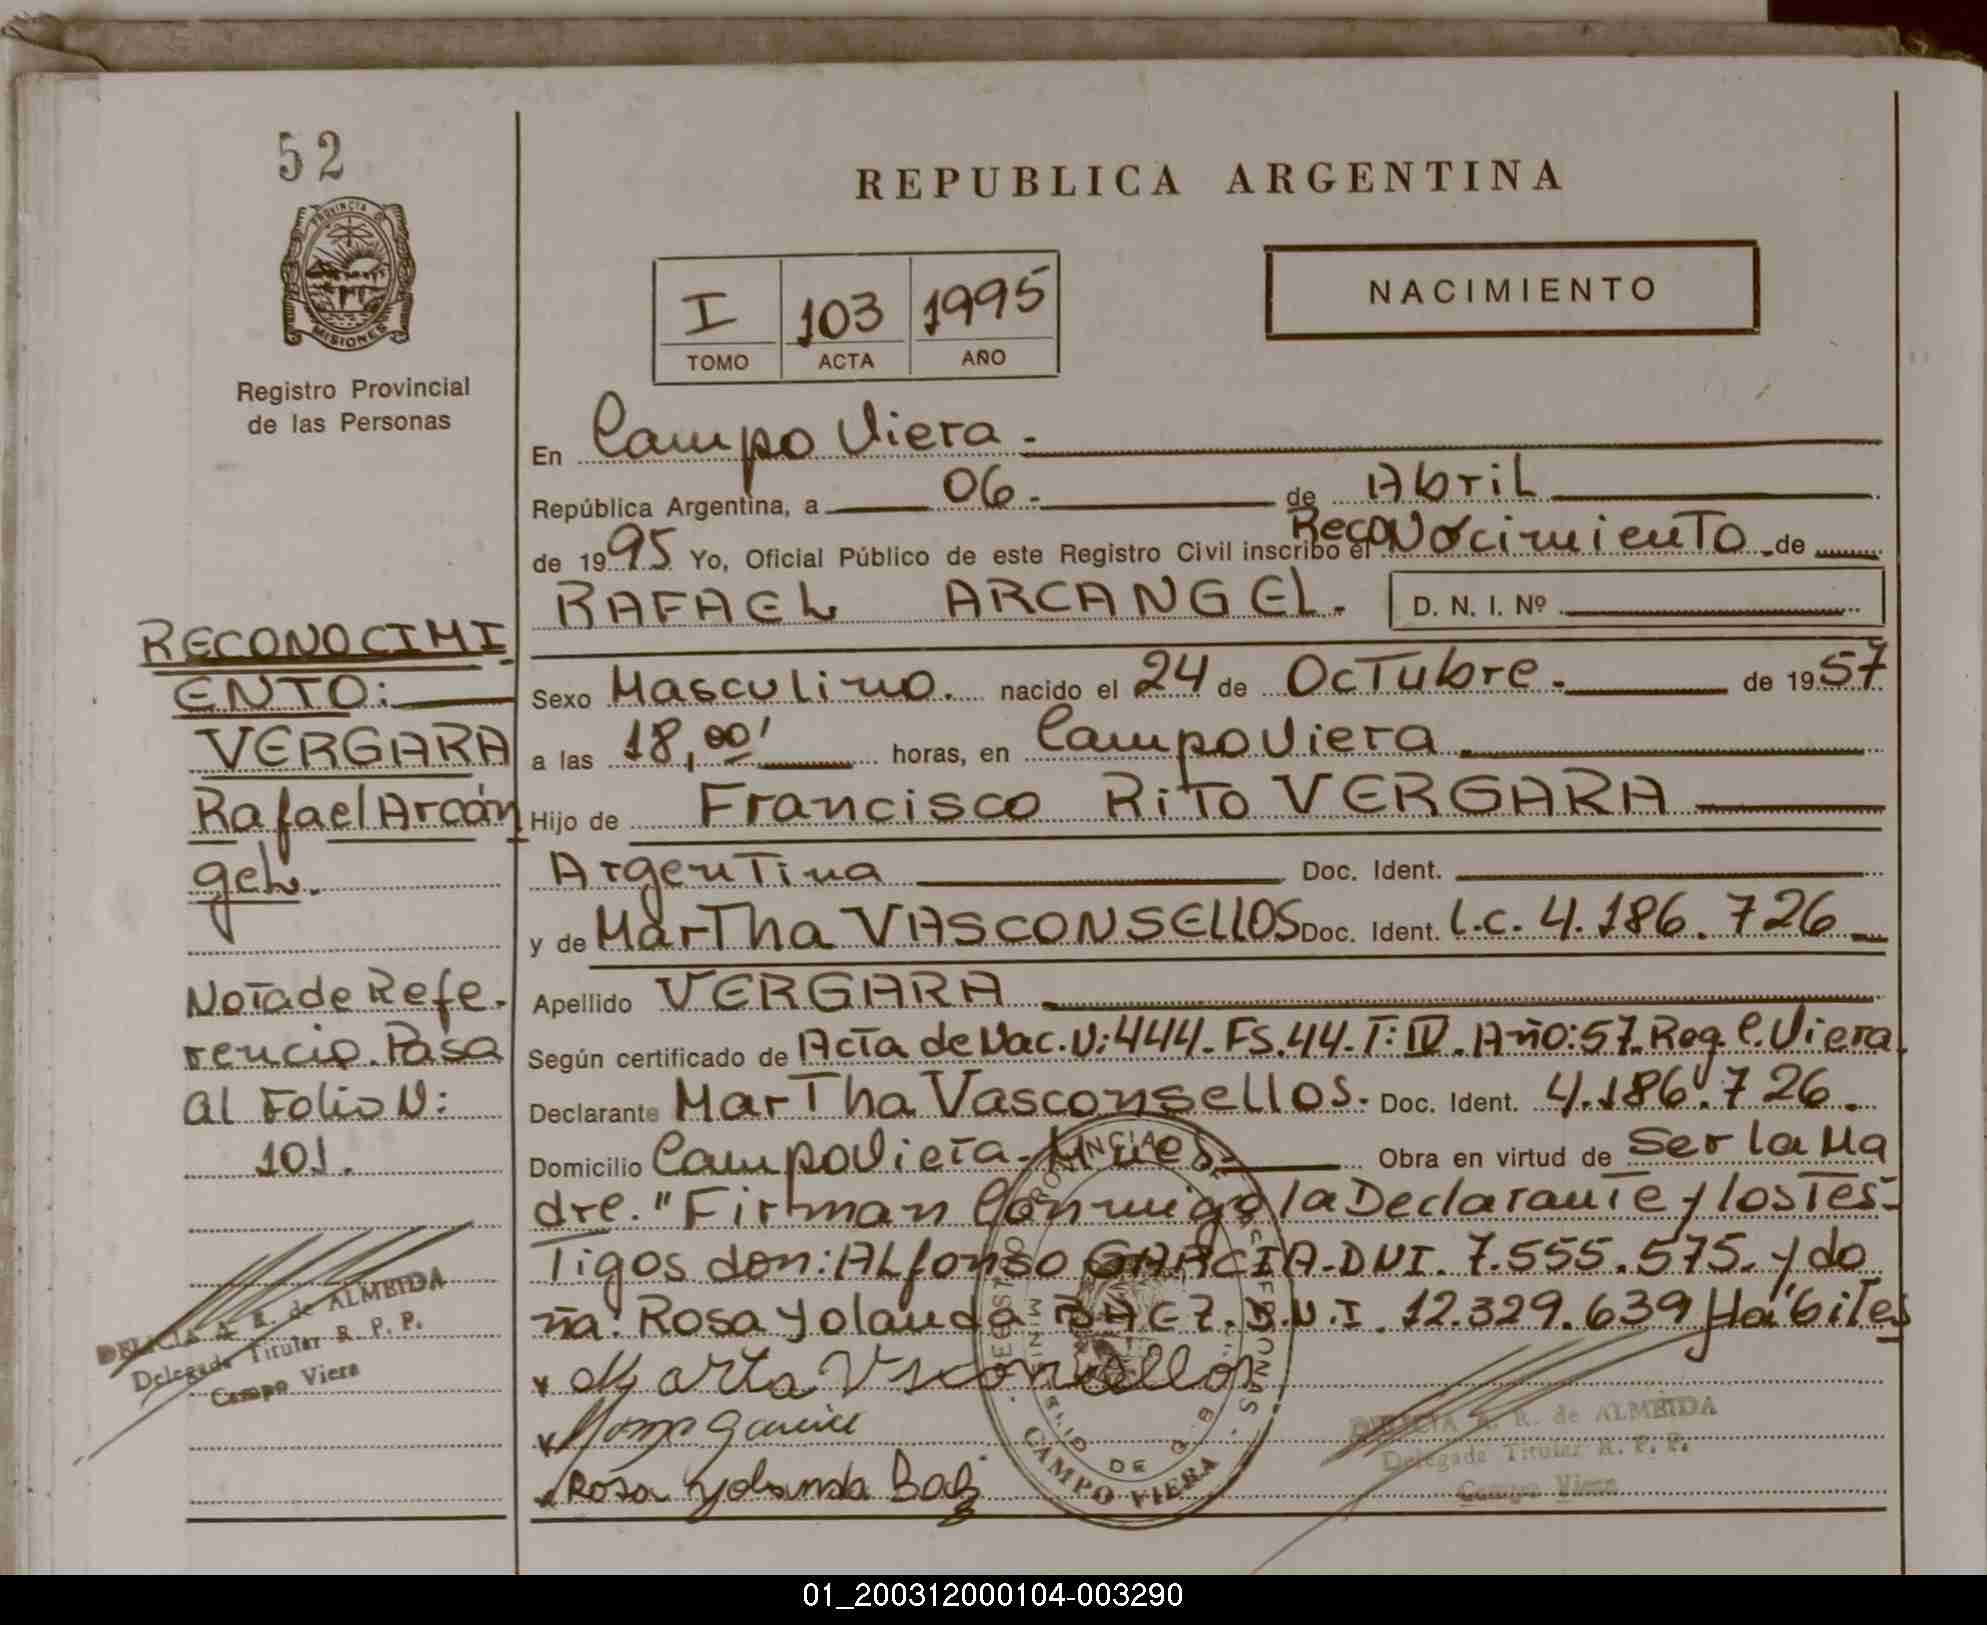 52
PROVINCIA DE
MISIONES
Registro Provincial
de las Personas
REPUBLICA ARGENTINA
I 103 1995
TOMO ACTA AÑO
NACIMIENTO
En Campo Viera.
República Argentina, a 06. de Abril
de 1995 Yo, Oficial Público de este Registro Civil inscribo el Reconocimiento de
RAFAEL ARCANGEL. D. N. I. Nº
Sexo Masculino. nacido el 24 de Octubre. de 1957
a las 18,00' horas, en Campo Viera
Hijo de Francisco Rito VERGARA
Argentina Doc. Ident.
y de Martha VASCONSELLOS Doc. Ident. L.C. 4.186.726
Apellido VERGARA
Según certificado de Acta de Nac. N: 444. FS. 44. T: IV. Año: 57. Reg. C. Viera.
Declarante Martha Vasconsellos. Doc. Ident. 4.186.726.
Domicilio Campo Viera. Mnes. Obra en virtud de Ser la Ma
dre. "Firman Conmigo la Declarante y los Tes-
Tigos don: Alfonso GARCIA. DNI. 7.555.575. y do
ña: Rosa Yolanda BAEZ. D.N.I. 12.329.639 Hábiles
Marta Vsconsellos
Garcia
Rosa Yolanda Baez
RECONOCIMI
ENTO:
VERGARA
Rafael Arcán
gel.
Nota de Refe.
rencia. Pasa
al Folio N:
101.
DELICIA A. R. de ALMEIDA
Delegada Titular R. P. P.
Campo Viera
CAMPO VIERA
DELICIA A. R. de ALMEIDA
Delegada Titular R. P. P.
Campo Viera
01_200312000104-003290